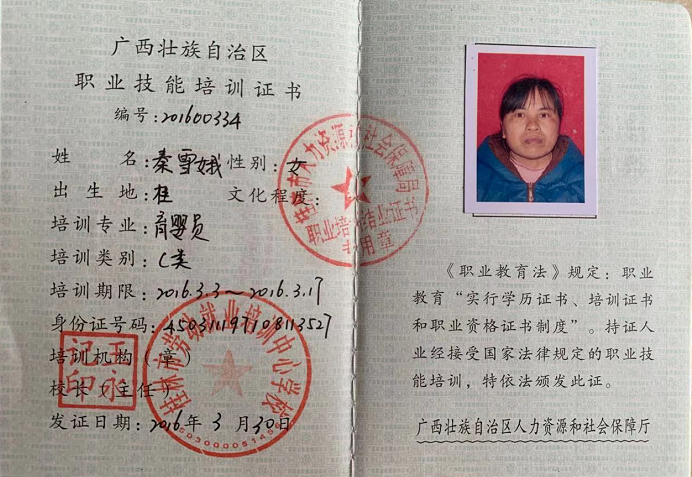 广西壮族自治区
职业技能培训证书
编号:201600334
姓名:秦雪娥 性别:女
出生地:桂 文化程度:
培训专业:育婴员
培训类别:C类
培训期限:2016.3.3～2016.3.17
身份证号码:450311197108113527
培训机构(章)
校长(主任)
发证日期:2016年3月30日
桂林市劳动就业培训中心学校
《职业教育法》规定：职业
教育“实行学历证书、培训证书
和职业资格证书制度”。持证人
业经接受国家法律规定的职业技
能培训，特依法颁发此证。
广西壮族自治区人力资源和社会保障厅